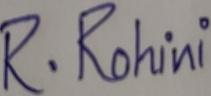 R. Rohini